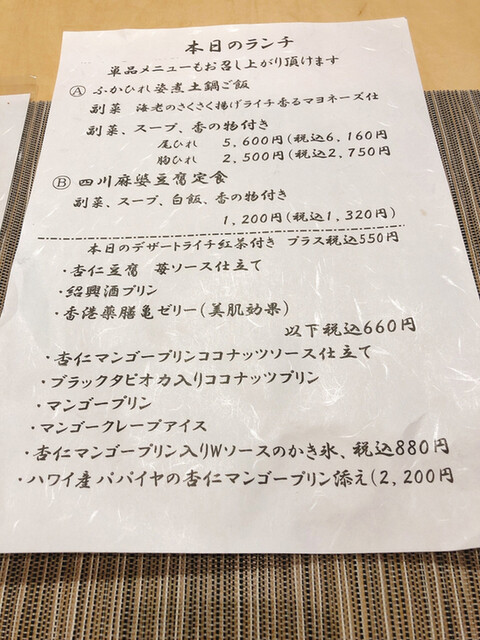 本日のランチ
単品メニューもお召し上がり頂けます
Ⓐ ふかひれ姿煮土鍋ご飯
副菜 海老のさくさく揚げライチ香るマヨネーズ仕
副菜、スープ、香の物付き
尾ひれ 5,600円(税込6,160円
胸ひれ 2,500円(税込2,750円
Ⓑ 四川麻婆豆腐定食
副菜、スープ、白飯、香の物付き
1,200円(税込1,320円)
本日のデザートライチ紅茶付き プラス税込550円
・杏仁豆腐 苺ソース仕立て
・紹興酒プリン
・香港薬膳亀ゼリー(美肌効果)
以下税込660円
・杏仁マンゴープリンココナッツソース仕立て
・ブラックタピオカ入りココナッツプリン
・マンゴープリン
・マンゴークレープアイス
・杏仁マンゴープリン入りWソースのかき氷、税込880円
・ハワイ産パパイヤの杏仁マンゴープリン添え(2,200円